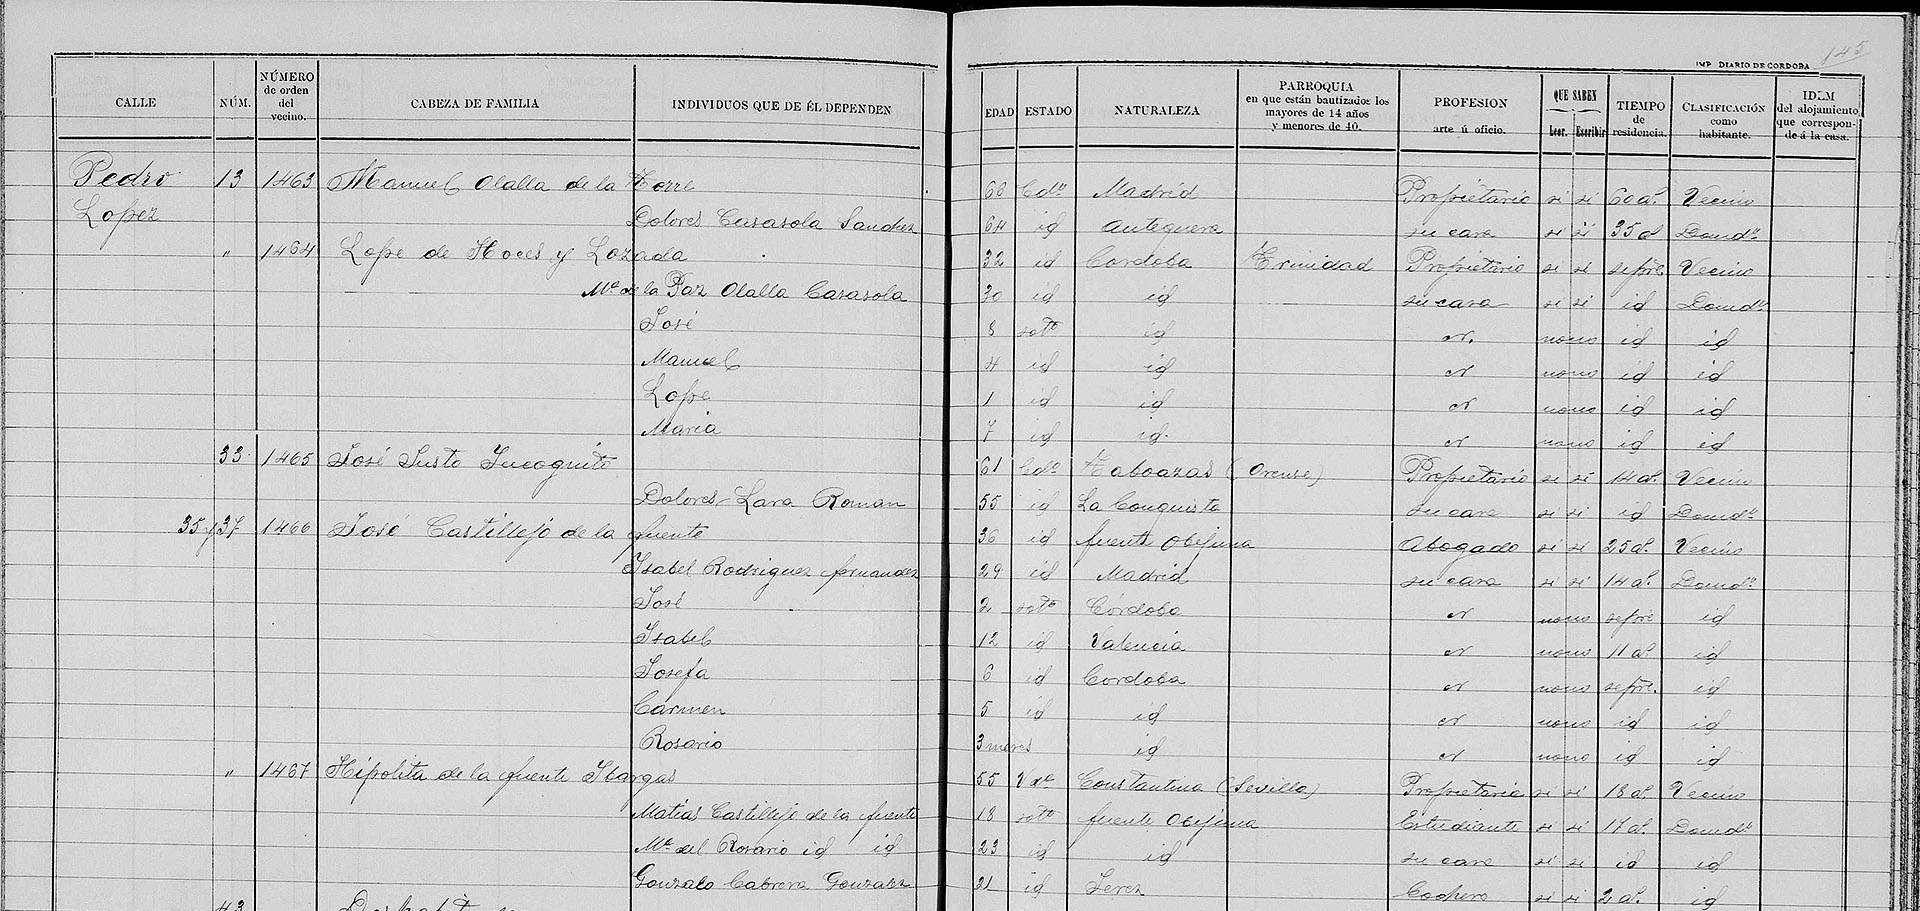 145
IMP. DIARIO DE CORDOBA
CALLE NÚM. NÚMERO de orden del vecino. CABEZA DE FAMILIA INDIVIDUOS QUE DE ÉL DEPENDEN EDAD ESTADO NATURALEZA PARROQUIA en que están bautizados los mayores de 14 años y menores de 40. PROFESION arte ú oficio. QUE SABEN Leer. Escribir TIEMPO de residencia. CLASIFICACIÓN como habitante. IDEM del alojamiento que correspon-de á la casa.
Pedro 13 1463 Manuel Olalla de la Torre 60 Cdo Madrid Propietario si si 60 as. Vecino
Lopez Dolores Casasola Sanchez 64 id Antequera su casa si si 35 as Domdo
" 1464 Lope de Hoces y Lozada 32 id Cordoba Trinidad Propietario si si sepre Vecino
Ma de la Paz Olalla Casasola 30 id id su casa si si id Domdo
José 8 solto id no no id id
Manuel 4 id id no no id id
Lope 1 id id no no id id
Maria 7 id id. no no id id
33 1465 José Justo Incognito 61 Cdo Taboazas (Orense) Propietario si si 14 as. Vecino
Dolores Lara Roman 55 id La Conquista su casa si si id Domdo
35 y 37 1466 José Castillejo de la fuente 36 id fuente Obejuna Abogado si si 25 as. Vecino
Isabel Rodriguez fernandez 29 id Madrid su casa si si 14 as. Domdo
José 2 solto Córdoba no no sepre id
Isabel 12 id Valencia no no 11 as. id
Josefa 6 id Cordoba no no sepre. id
Carmen 5 id id no no id id
Rosario 3 meses id no no id id
" 1467 Hipolita de la fuente Ibargas 55 Vda Constantina (Sevilla) Propietaria si si 18 as. Vecino
Matias Castillejo de la fuente 18 solto fuente Obejuna Estudiante si si 17 as. Domdo
Ma del Rosario id id 23 id id su casa si si id id
Gonzalo Cabrera Gonzalez 21 id Jerez Cochero si si 2 as. id
43